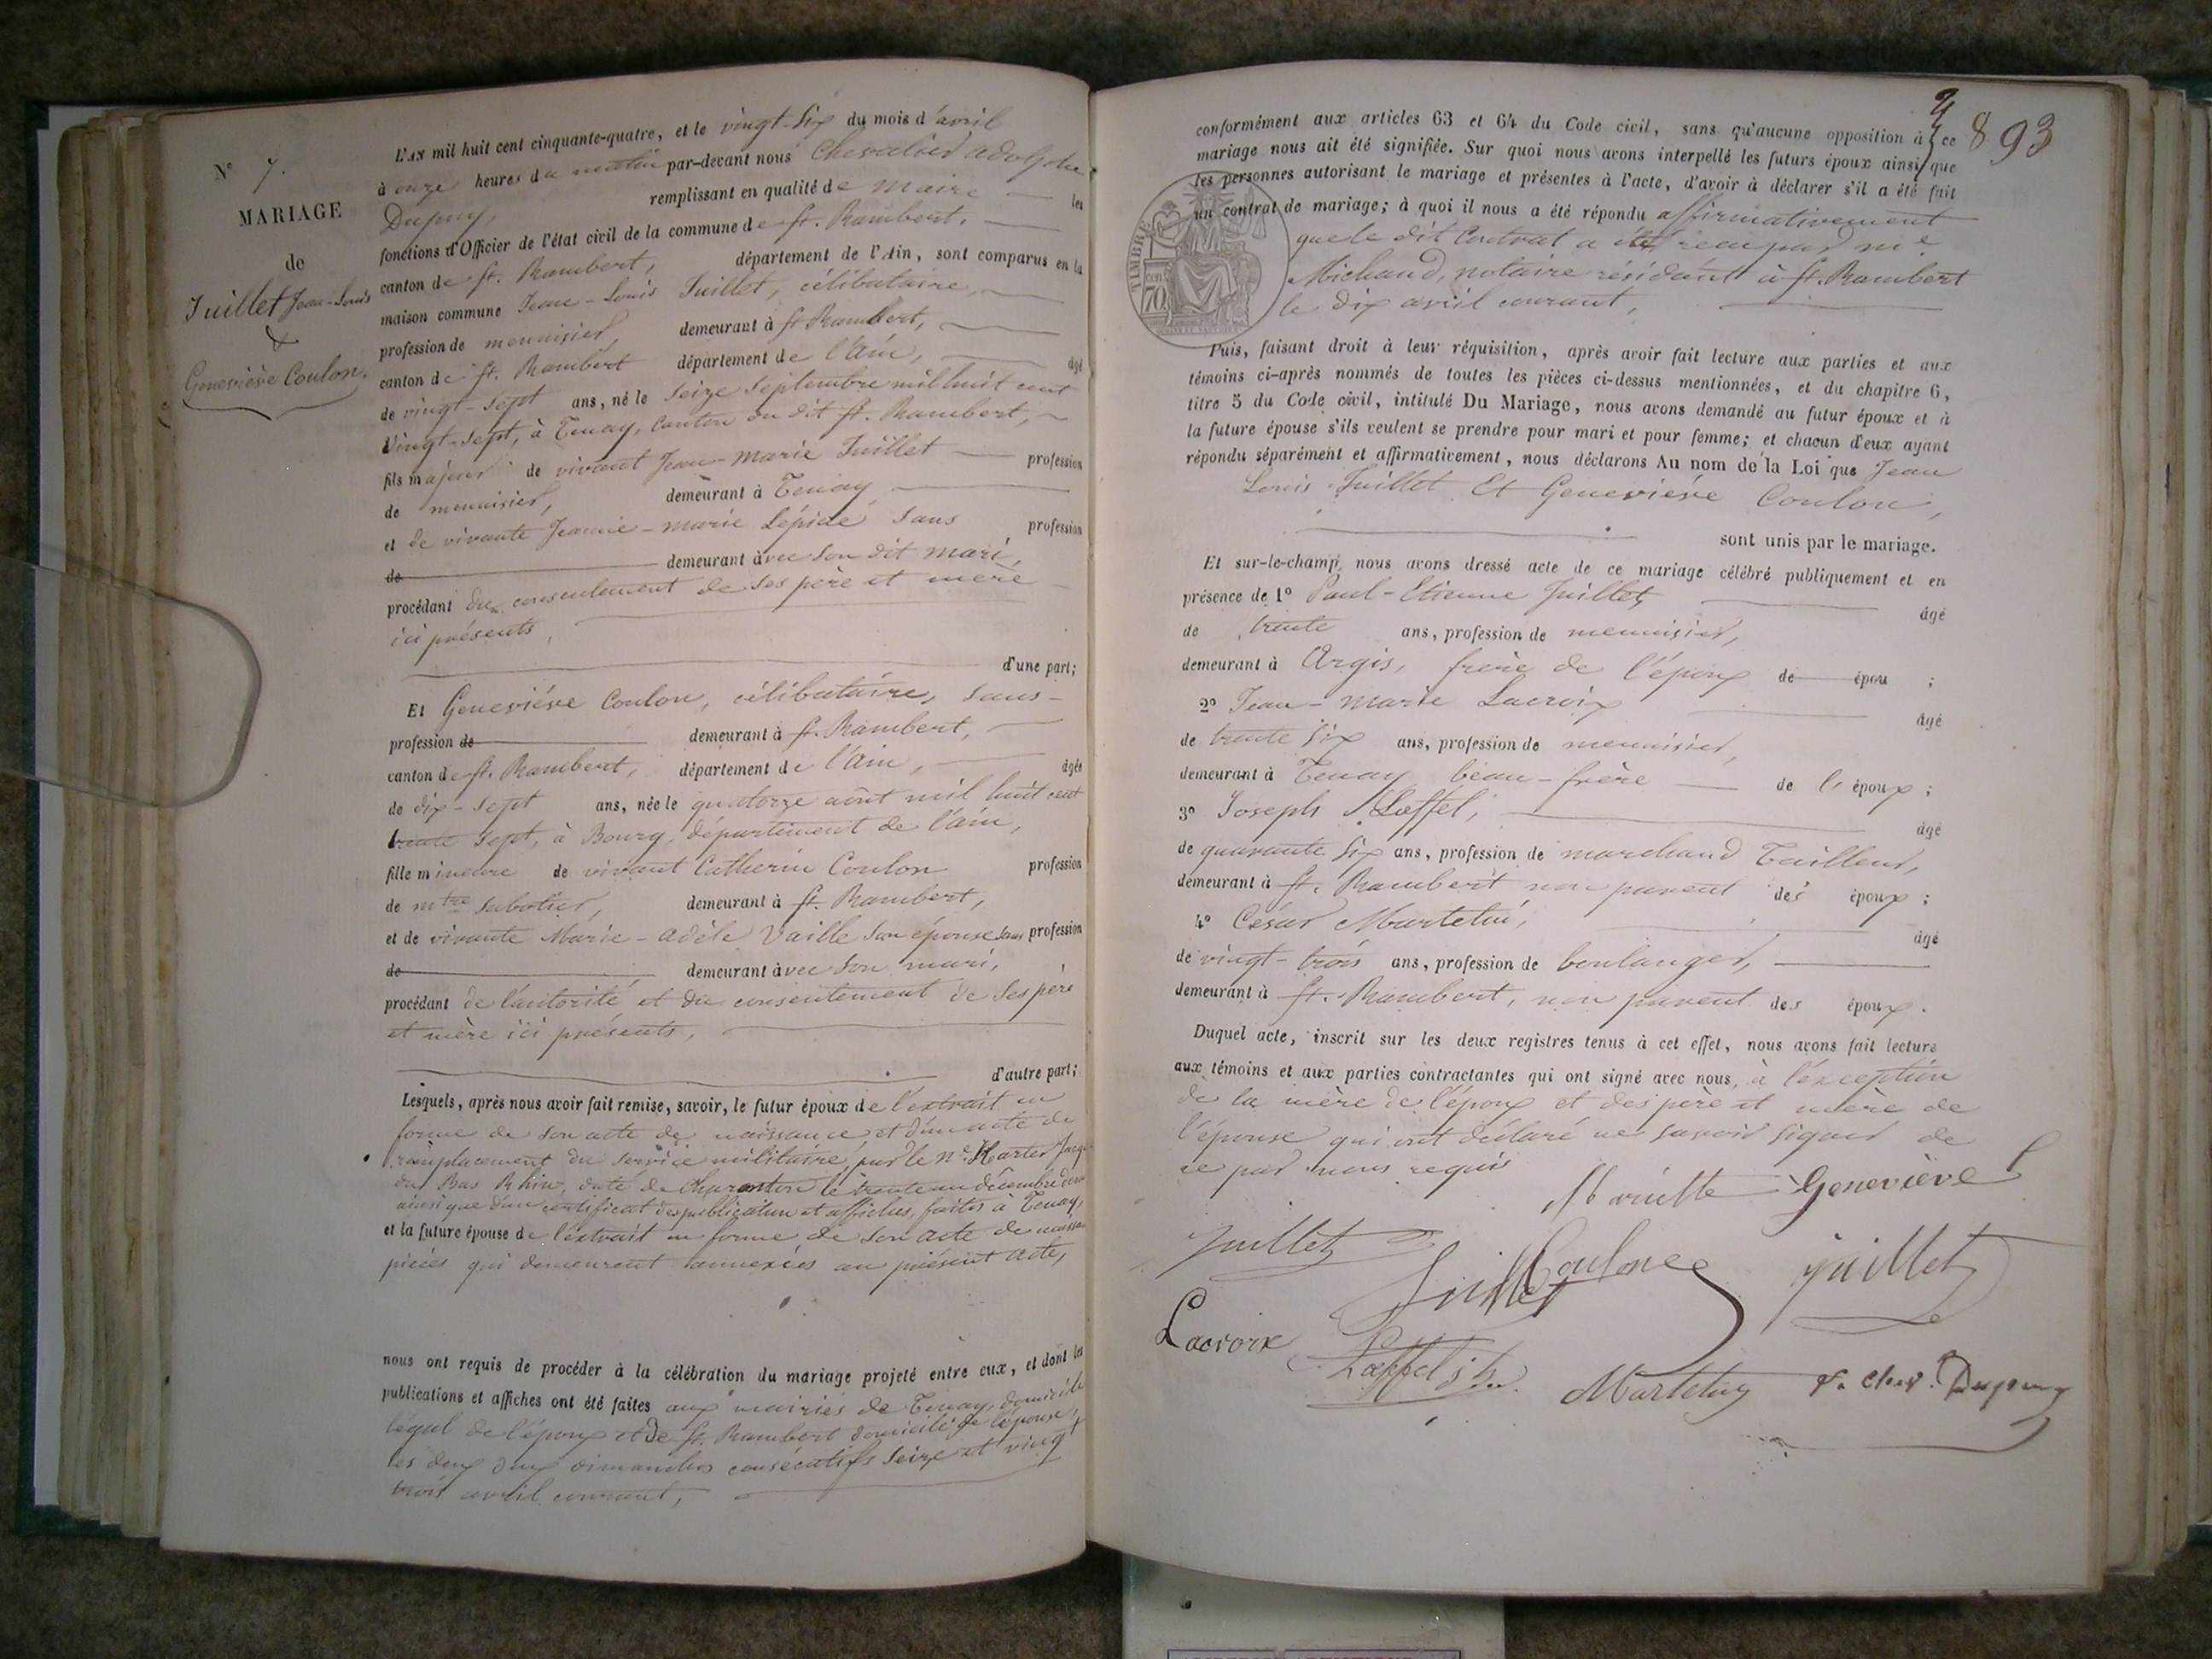 N° 7.
MARIAGE
de
Juillet Jean-Louis
&
Geneviève Coulon.
L'AN mil huit cent cinquante-quatre, et le vingt-six du mois d'avril
à onze heures du matin par-devant nous Chevalier adolphe
Dupuy, remplissant en qualité de maire les
fonctions d'Officier de l'état civil de la commune de St. Rambert,
canton de St. Rambert, département de l'Ain, sont comparus en la
maison commune Jean-Louis Juillet, célibataire,
profession de menuisier, demeurant à St Rambert,
canton de St. Rambert département de l'ain, âgé
de vingt-sept ans, né le seize septembre mil huit cent
vingt-sept, à Tenay, canton du dit St. Rambert,
fils majeur de vivant Jean-marie Juillet profession
de menuisier, demeurant à Tenay
et de vivante Jeanne-marie Lépine sans profession
de demeurant avec son dit mari,
procédant du consentement de ses père et mère
ici présents,
d'une part;
Et Geneviéve Coulon, célibataire, sans
profession de demeurant à St. Rambert,
canton de St. Rambert, département de l'ain, âgée
de dix-sept ans, née le quatorze août mil huit cent
trente sept, à Bourg, département de l'ain,
fille mineure de vivant Catherin Coulon profession
de mtre sabotier, demeurant à St. Rambert,
et de vivante Marie-adèle Vaille son épouse sans profession
de demeurant avec son mari,
procédant de l'autorité et du consentement de ses père
et mère ici présents,
d'autre part;
Lesquels, après nous avoir fait remise, savoir, le futur époux de l'extrait en
forme de son acte de naissance et d'un acte de
remplacement du service militaire, par le né Karter
du Bas Rhin, daté de Charenton le trente un décembre
ainsi que d'un certificat de publication et affiches, faites à Tenay,
et la future épouse de l'extrait en forme de son acte de
pièces qui demeurent annexées au présent acte,
nous ont requis de procéder à la célébration du mariage projeté entre eux, et dont les
publications et affiches ont été faites aux mairies de Tenay, domicile
légal de l'époux et de St. Rambert domicile de l'épouse,
les deux dimanches consécutifs seize et vingt
trois avril courant,
893
conformément aux articles 63 et 64 du Code civil, sans qu'aucune opposition à ce
mariage nous ait été signifiée. Sur quoi nous avons interpellé les futurs époux ainsi que
les personnes autorisant le mariage et présentes à l'acte, d'avoir à déclarer s'il a été fait
un contrat de mariage; à quoi il nous a été répondu affirmativement
que le dit contrat a été reçu par me
Michaud, notaire résidant à St. Rambert
le dix avril courant,
TIMBRE
70
Puis, faisant droit à leur réquisition, après avoir fait lecture aux parties et aux
témoins ci-après nommés de toutes les pièces ci-dessus mentionnées, et du chapitre 6,
titre 5 du Code civil, intitulé Du Mariage, nous avons demandé au futur époux et à
la future épouse s'ils veulent se prendre pour mari et pour femme; et chacun d'eux ayant
répondu séparément et affirmativement, nous déclarons Au nom de la Loi que Jean
Louis Juillet Et Geneviéve Coulon,
sont unis par le mariage.
Et sur-le-champ, nous avons dressé acte de ce mariage célébré publiquement et en
présence de 1° Paul-Etienne Juillet, âgé
de trente ans, profession de menuisier,
demeurant à Argis, frère de l'époux de épou ;
2° Jean-marie Lacroix âgé
de trente six ans, profession de menuisier,
demeurant à Tenay beau-frère de l'époux ;
3° Joseph Lœffel, âgé
de quarante six ans, profession de marchand Tailleur,
demeurant à St. Rambert non parent des époux ;
4° César Martelin, âgé
de vingt-trois ans, profession de boulanger,
demeurant à St. Rambert, non parent des époux.
Duquel acte, inscrit sur les deux registres tenus à cet effet, nous avons fait lecture
aux témoins et aux parties contractantes qui ont signé avec nous, à l'exception
de la mère de l'époux et des père et mère de
l'épouse qui ont déclaré ne savoir signer de
ce par nous requis
Mariette Geneviève
Juillet
Juillet
Coulon
juillet
Lacroix
Lœffel
Martelin
Dupuy